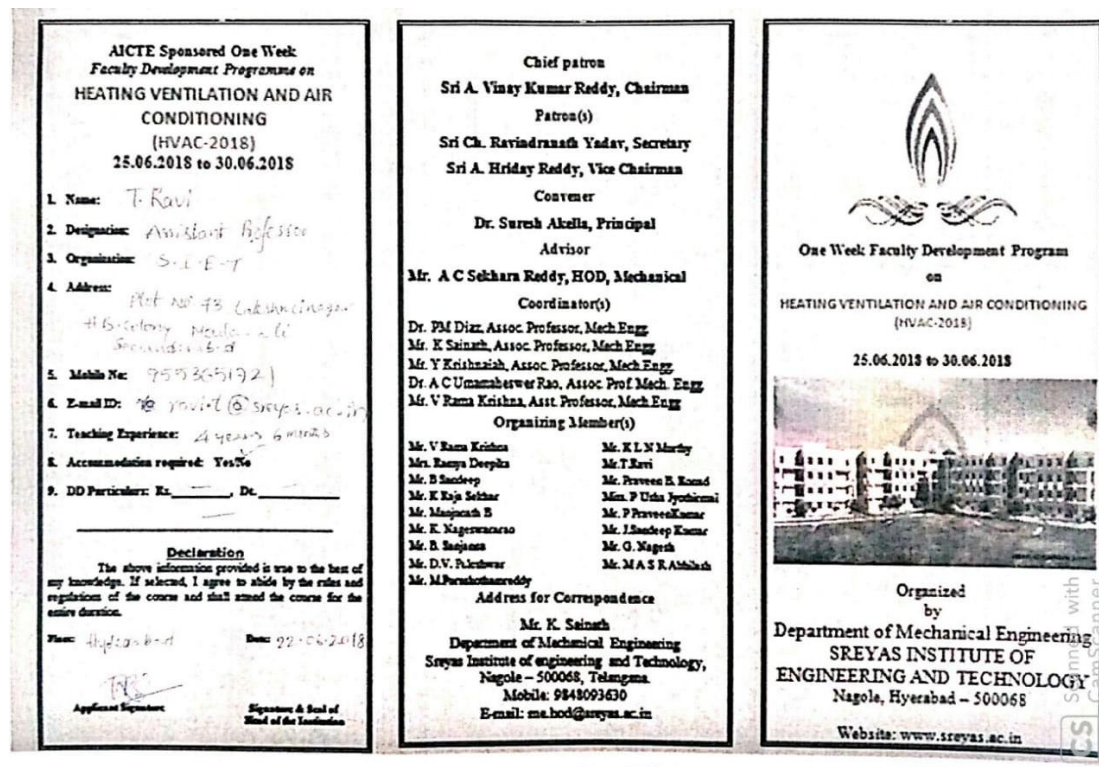 AICTE Sponsored One Week
Faculty Development Programme on
HEATING VENTILATION AND AIR
CONDITIONING
(HVAC-2018)
25.06.2018 to 30.06.2018
1. Name: T. Ravi
2. Designation: Assistant Professor
3. Organization: S.I.E.T
4. Address:
Plot No 73
H.B. Colony
5. Mobile No: 9553651921
6. E-mail ID: ravi.t@sreyas.ac.in
7. Teaching Experience: 4 years 6 months
8. Accommodation required: Yes/No
9. DD Particulars: Rs.________, Dt. ________
Declaration
The above information provided is true to the best of
my knowledge. If selected, I agree to abide by the rules and
regulations of the course and shall attend the course for the
entire duration.
Place: Date: 22-06-2018
Applicant Signature Signature & Seal of
Head of the Institution
Chief patron
Sri A. Vinay Kumar Reddy, Chairman
Patron(s)
Sri Ch. Ravindranath Yadav, Secretary
Sri A. Hriday Reddy, Vice Chairman
Convener
Dr. Suresh Akella, Principal
Advisor
Mr. A C Sekhara Reddy, HOD, Mechanical
Coordinator(s)
Dr. PM Diaz, Assoc. Professor, Mech.Engg
Mr. K Sainath, Assoc. Professor, Mech.Engg
Mr. Y Krishnaiah, Assoc. Professor, Mech.Engg
Dr. A C Umamaheswer Rao, Assoc. Prof. Mech. Engg
Mr. V Rama Krishna, Asst. Professor, Mech.Engg
Organizing Member(s)
Mr. V Rama Krishna Mr. K L N Murthy
Mrs. Ramya Deepika Mr.T.Ravi
Mr. B Sandeep Mr. Praveen B.
Mr. K Raja Sekhar P Usha Jyothirmai
Mr. Manjunath B Mr. P PraveenKumar
Mr. K. Nageswararao Mr. J.Sandeep Kumar
Mr. B. Sanjanna Mr. G. Nagesh
Mr. D.V. Paleshwar Mr. M A S R Abhilash
Mr. M.Purushothamreddy
Address for Correspondence
Mr. K. Sainath
Department of Mechanical Engineering
Sreyas Institute of engineering and Technology,
Nagole – 500068, Telangana.
Mobile: 9848093630
E-mail: me.hod@sreyas.ac.in
One Week Faculty Development Program
on
HEATING VENTILATION AND AIR CONDITIONING
(HVAC-2018)
25.06.2018 to 30.06.2018
Organized
by
Department of Mechanical Engineering
SREYAS INSTITUTE OF
ENGINEERING AND TECHNOLOGY
Nagole, Hyerabad – 500068
Website: www.sreyas.ac.in
CS Scanned with
CamScanner